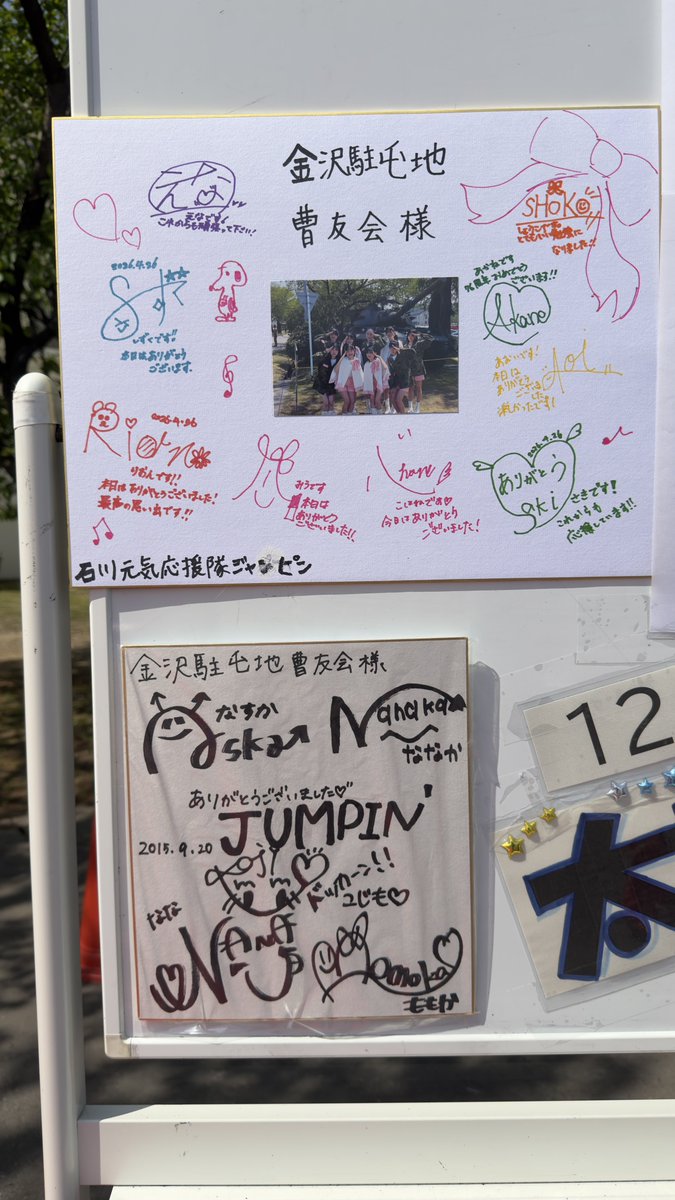 金沢駐屯地
曹友会様
えな
えなです!
これからも頑張って下さい!
SHOKO
しょうこです
とてもいい勉強に
なりました!
2026.4.26
しずくです!!
本日はありがとう
ございます。
あかねです
76周年おめでとう
ございます!!
Akane
あおいです!
本日は
ありがとう
ございました
楽しかったです!
Aoi
2026.4.26
Riono
りおんです!!
本日はありがとうございました!
最高の思い出です!!
みうです
本日は
ありがとう
ございました!!
hane
こはねです
今日はありがとう
ございました!
2026.4.26
ありがとう
Saki
さきです!
これからも
応援しています!!
石川元気応援隊ジャンピン
金沢駐屯地曹友会様
Aska
なすか
Nanaka
ななか
ありがとうございました♡
JUMPIN'
2015.9.20
Koji
ドッカーン!!
こじも♡
なな
NANA
Momoka
ももか
12